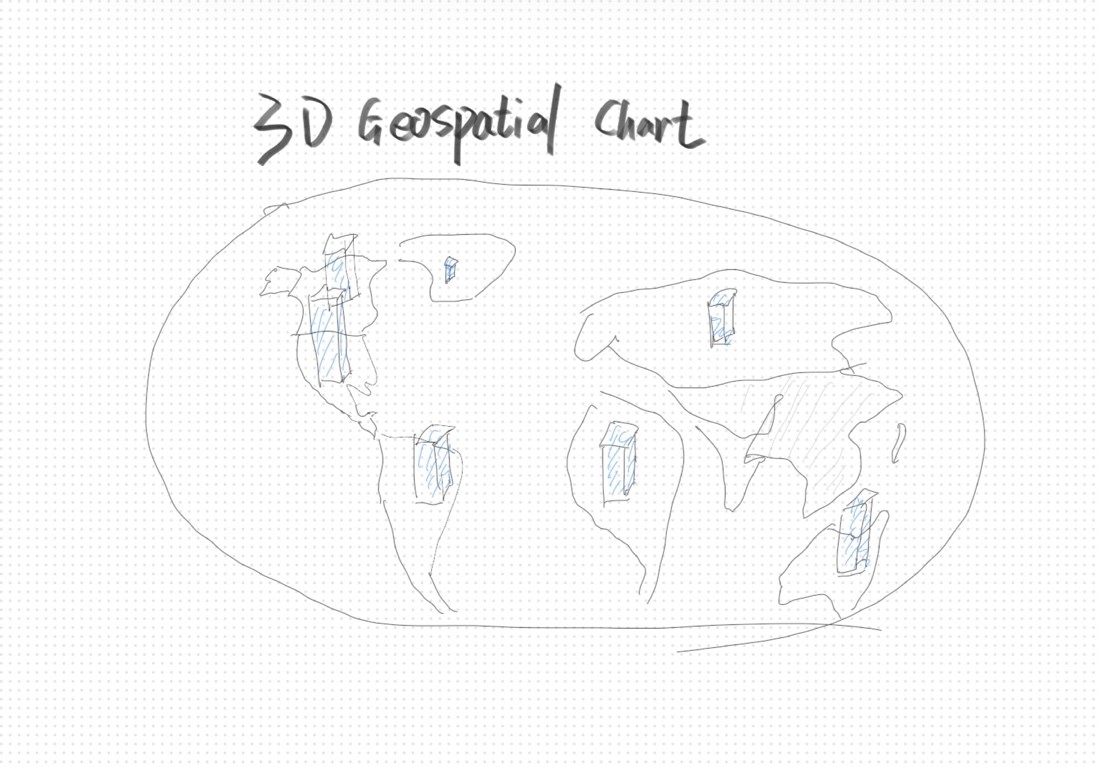 3D Geospatial Chart